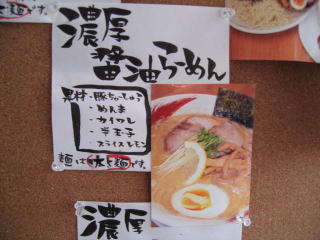 麺です。
濃厚
醤油らーめん
具材・豚ちゃーしゅう
・めんま
・カイワレ
・半玉子
・スライスレモン
麺は太麺です。
濃厚